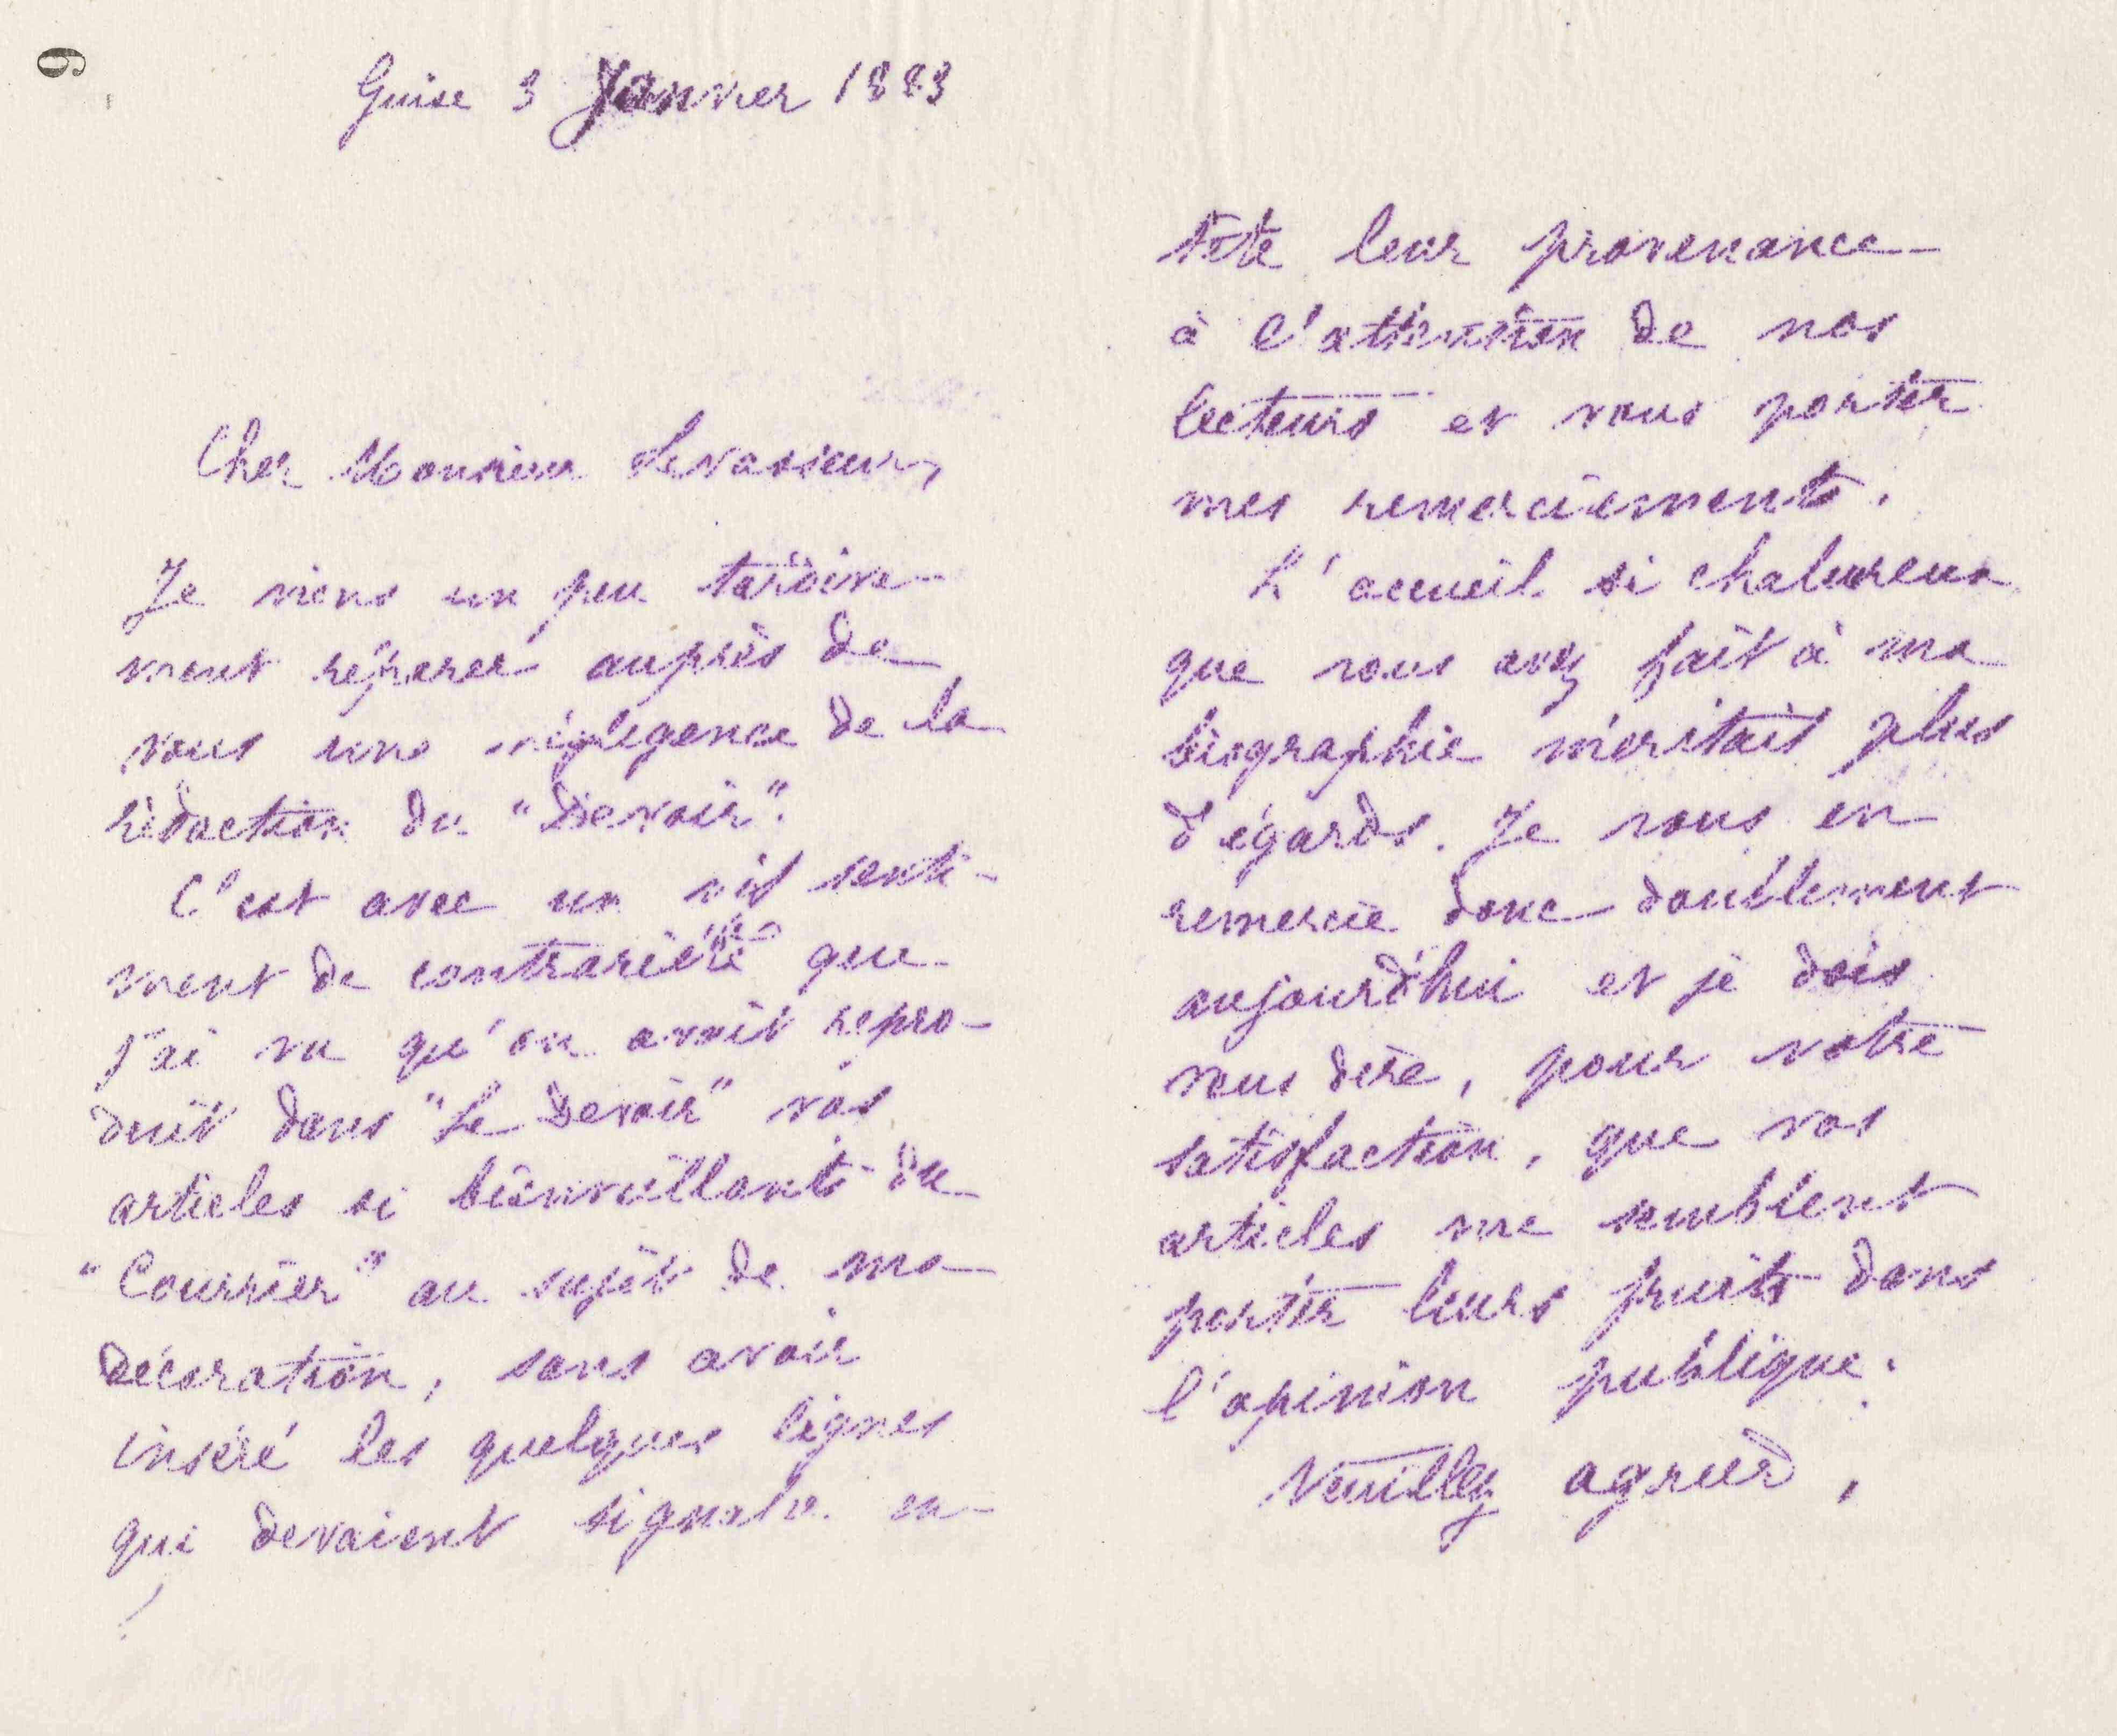 9
Guise 3 Janvier 1883
Cher Monsieur Levasseur,
Je viens un peu tardive-
ment réparer auprès de
vous une négligence de la
rédaction du "Devoir".
C'est avec un vif senti-
ment de contrariété que
j'ai vu qu'on avait repro-
duit dans "Le Devoir" vos
articles si bienveillants du
"Courrier" au sujet de ma
décoration, sans avoir
inséré les quelques lignes
qui devaient signaler en
tête leur provenance
à l'attention de nos
lecteurs et vous porter
mes remerciements.
L'accueil si chaleureux
que vous avez fait à ma
biographie méritait plus
d'égards. Je vous en
remercie donc doublement
aujourd'hui et je dois
vous dire, pour votre
satisfaction, que vos
articles me semblent
porter leurs fruits dans
l'opinion publique.
Veuillez agréer,